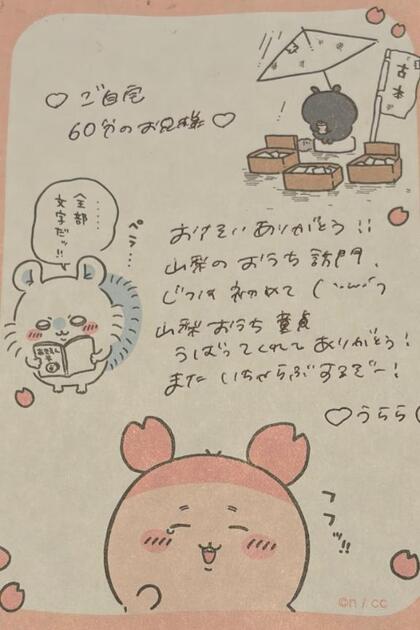 ♡ ご自宅
60分のお兄様 ♡
古本
……
全部
文字だッ!!
ペラ…
おさそいありがとう!!
山梨のおうち訪問、
じつは初めて
山梨おうち童貞
うばってくれてありがとう!
またいちゃらぶするぞー!
♡うらら
フフッ!!
©n / cc